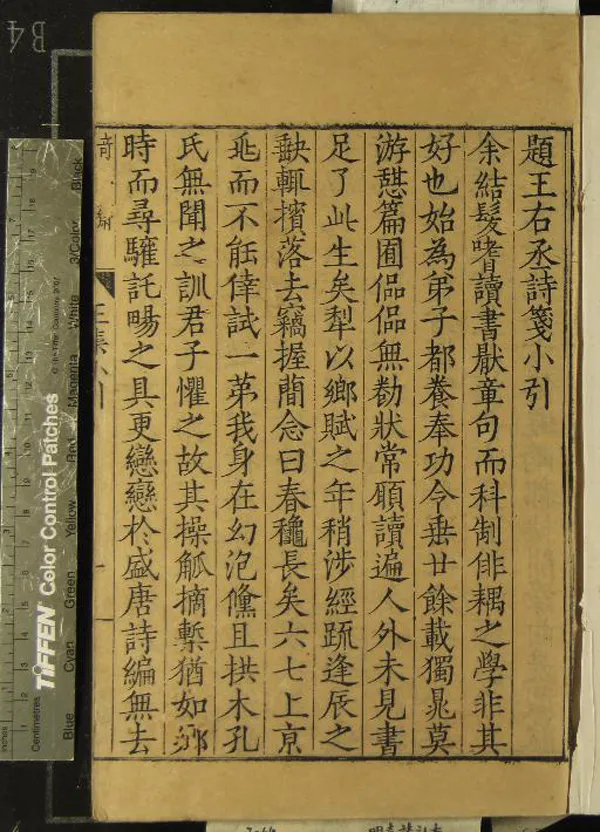 題王右丞詩箋小引
余結髮嗜讀書厭章句而科制俳耦之學非其
好也始為弟子都養奉功令垂廿餘載獨晁莫
游憇篇囿偘偘無勌狀常願讀遍人外未見書
足了此生矣犁以鄉賦之年稍涉經䟽逢辰之
缺輒擯落去竊握蕳念曰春穐長矣六七上京
兆而不能倖試一第我身在幻泡儻且拱木孔
氏無聞之訓君子懼之故其操觚摘槧猶如鄉
時而尋騅託暘之具更戀戀於盛唐詩編無去
王集小引
TIFFEN Color Control Patches
© The Tiffen Company, 2007
Centimetres
Inches
Blue
Cyan
Green
Yellow
Red
Magenta
White
3/Color
Black
B4